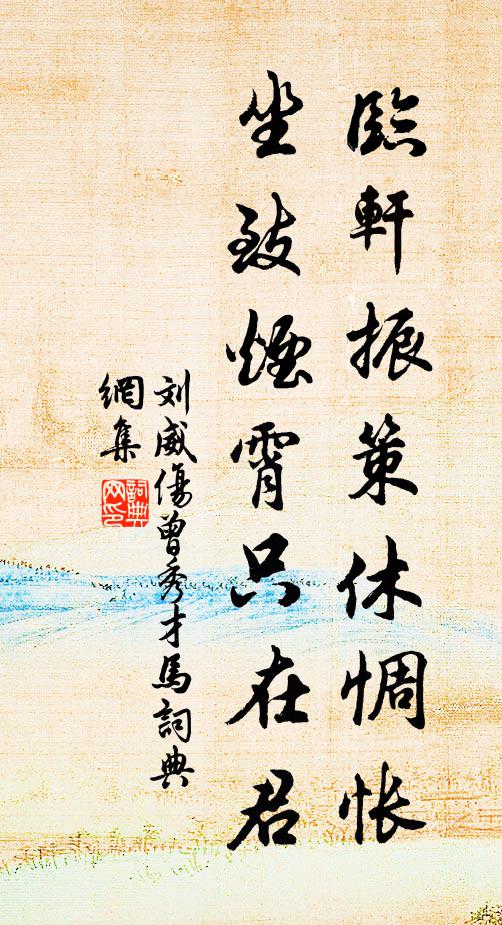 臨軒振策休惆怅
坐致煙霄只在君
刘威傷曾秀才馬詞典
網集
詞典
网印